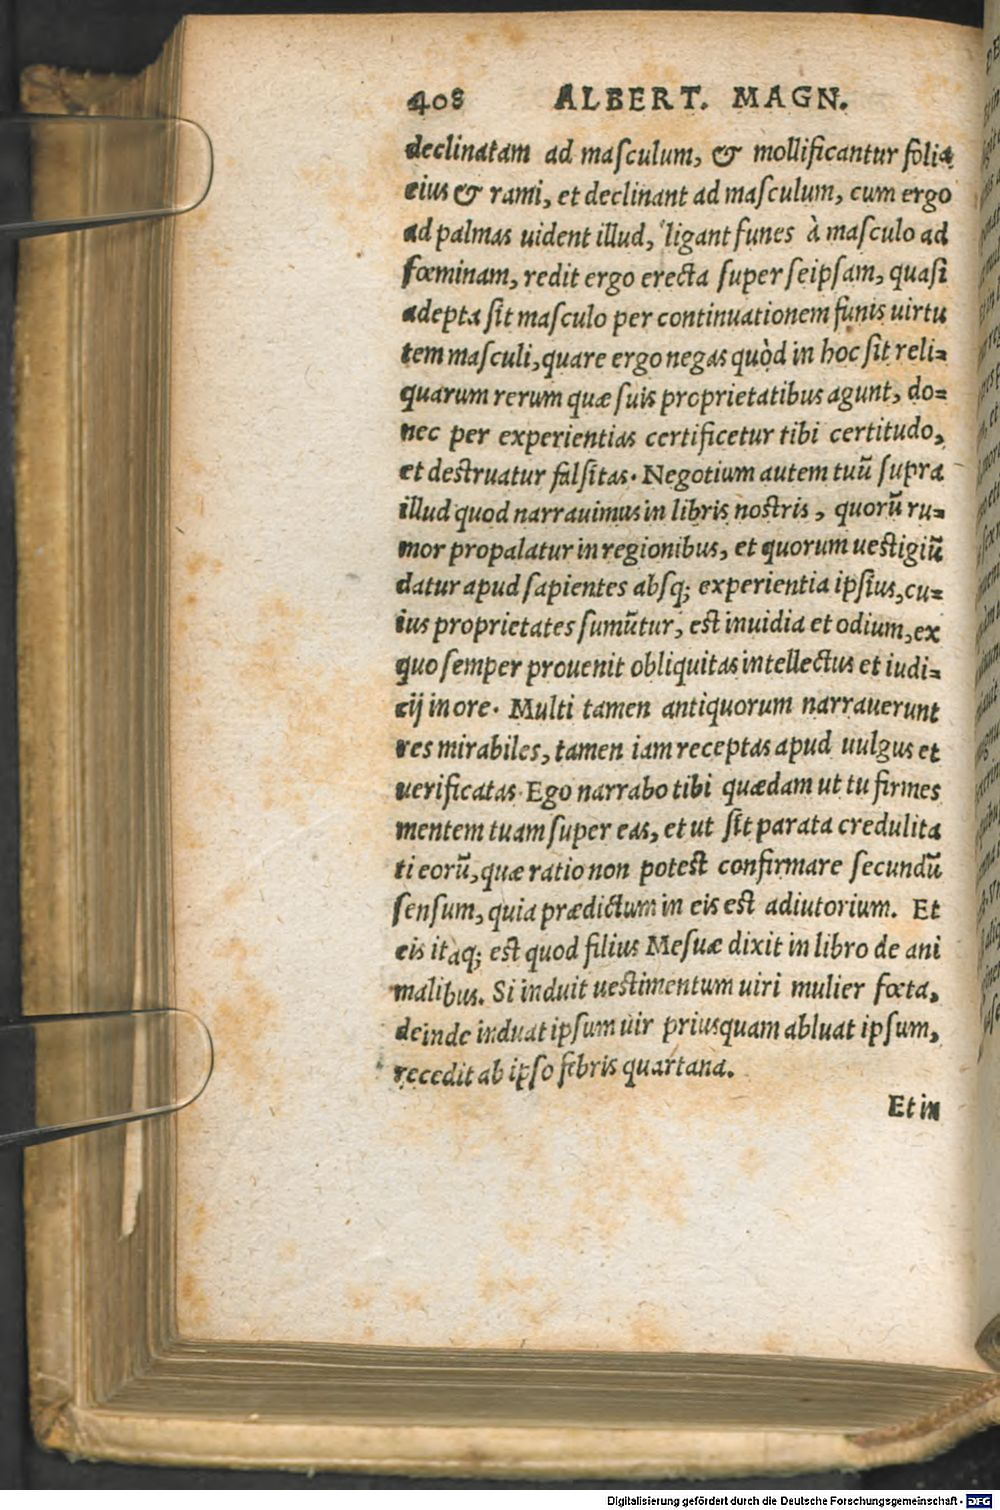 408 ALBERT. MAGN.
declinatam ad maſculum, & mollificantur folia
eius & rami, et declinant ad maſculum, cum ergo
ad palmas uident illud, ligant funes à maſculo ad
fœminam, redit ergo erecta ſuper ſeipſam, quaſi
adepta ſit maſculo per continuationem funis uirtu
tem maſculi, quare ergo negas quòd in hoc ſit reli-
quarum rerum quæ ſuis proprietatibus agunt, do-
nec per experientias certificetur tibi certitudo,
et destruatur falſitas. Negotium autem tuũ ſupra
illud quod narrauimus in libris nostris, quorũ ru-
mor propalatur in regionibus, et quorum uestigiũ
datur apud ſapientes abſq; experientia ipſius, cu-
ius proprietates ſumũtur, est inuidia et odium, ex
quo ſemper prouenit obliquitas intellectus et iudi-
cij in ore. Multi tamen antiquorum narrauerunt
res mirabiles, tamen iam receptas apud uulgus et
uerificatas. Ego narrabo tibi quædam ut tu firmes
mentem tuam ſuper eas, et ut ſit parata credulita
ti eorũ, quæ ratio non potest confirmare ſecundũ
ſenſum, quia prædictum in eis est adiutorium. Et
eis itaq; est quod filius Meſuæ dixit in libro de ani
malibus. Si induit uestimentum uiri mulier fœta,
deinde induat ipſum uir priusquam abluat ipſum,
recedit ab ipſo febris quartana.
Et in
Digitalisierung gefördert durch die Deutsche Forschungsgemeinschaft - DFG